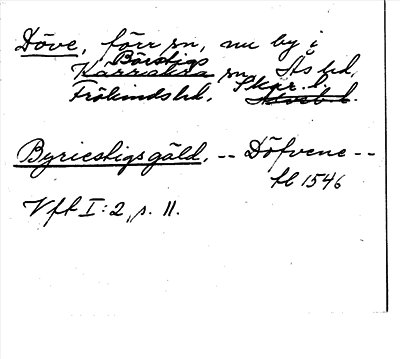 Döve, förr sn, nu by i
Börstigs
Kärråkra sn, Ås hd,
Frökinds hd. Skar. l.
Älvsb. l.
Byriestigs gäld. -- Döfvene --
tl 1546
Vft I:2, s. 11.